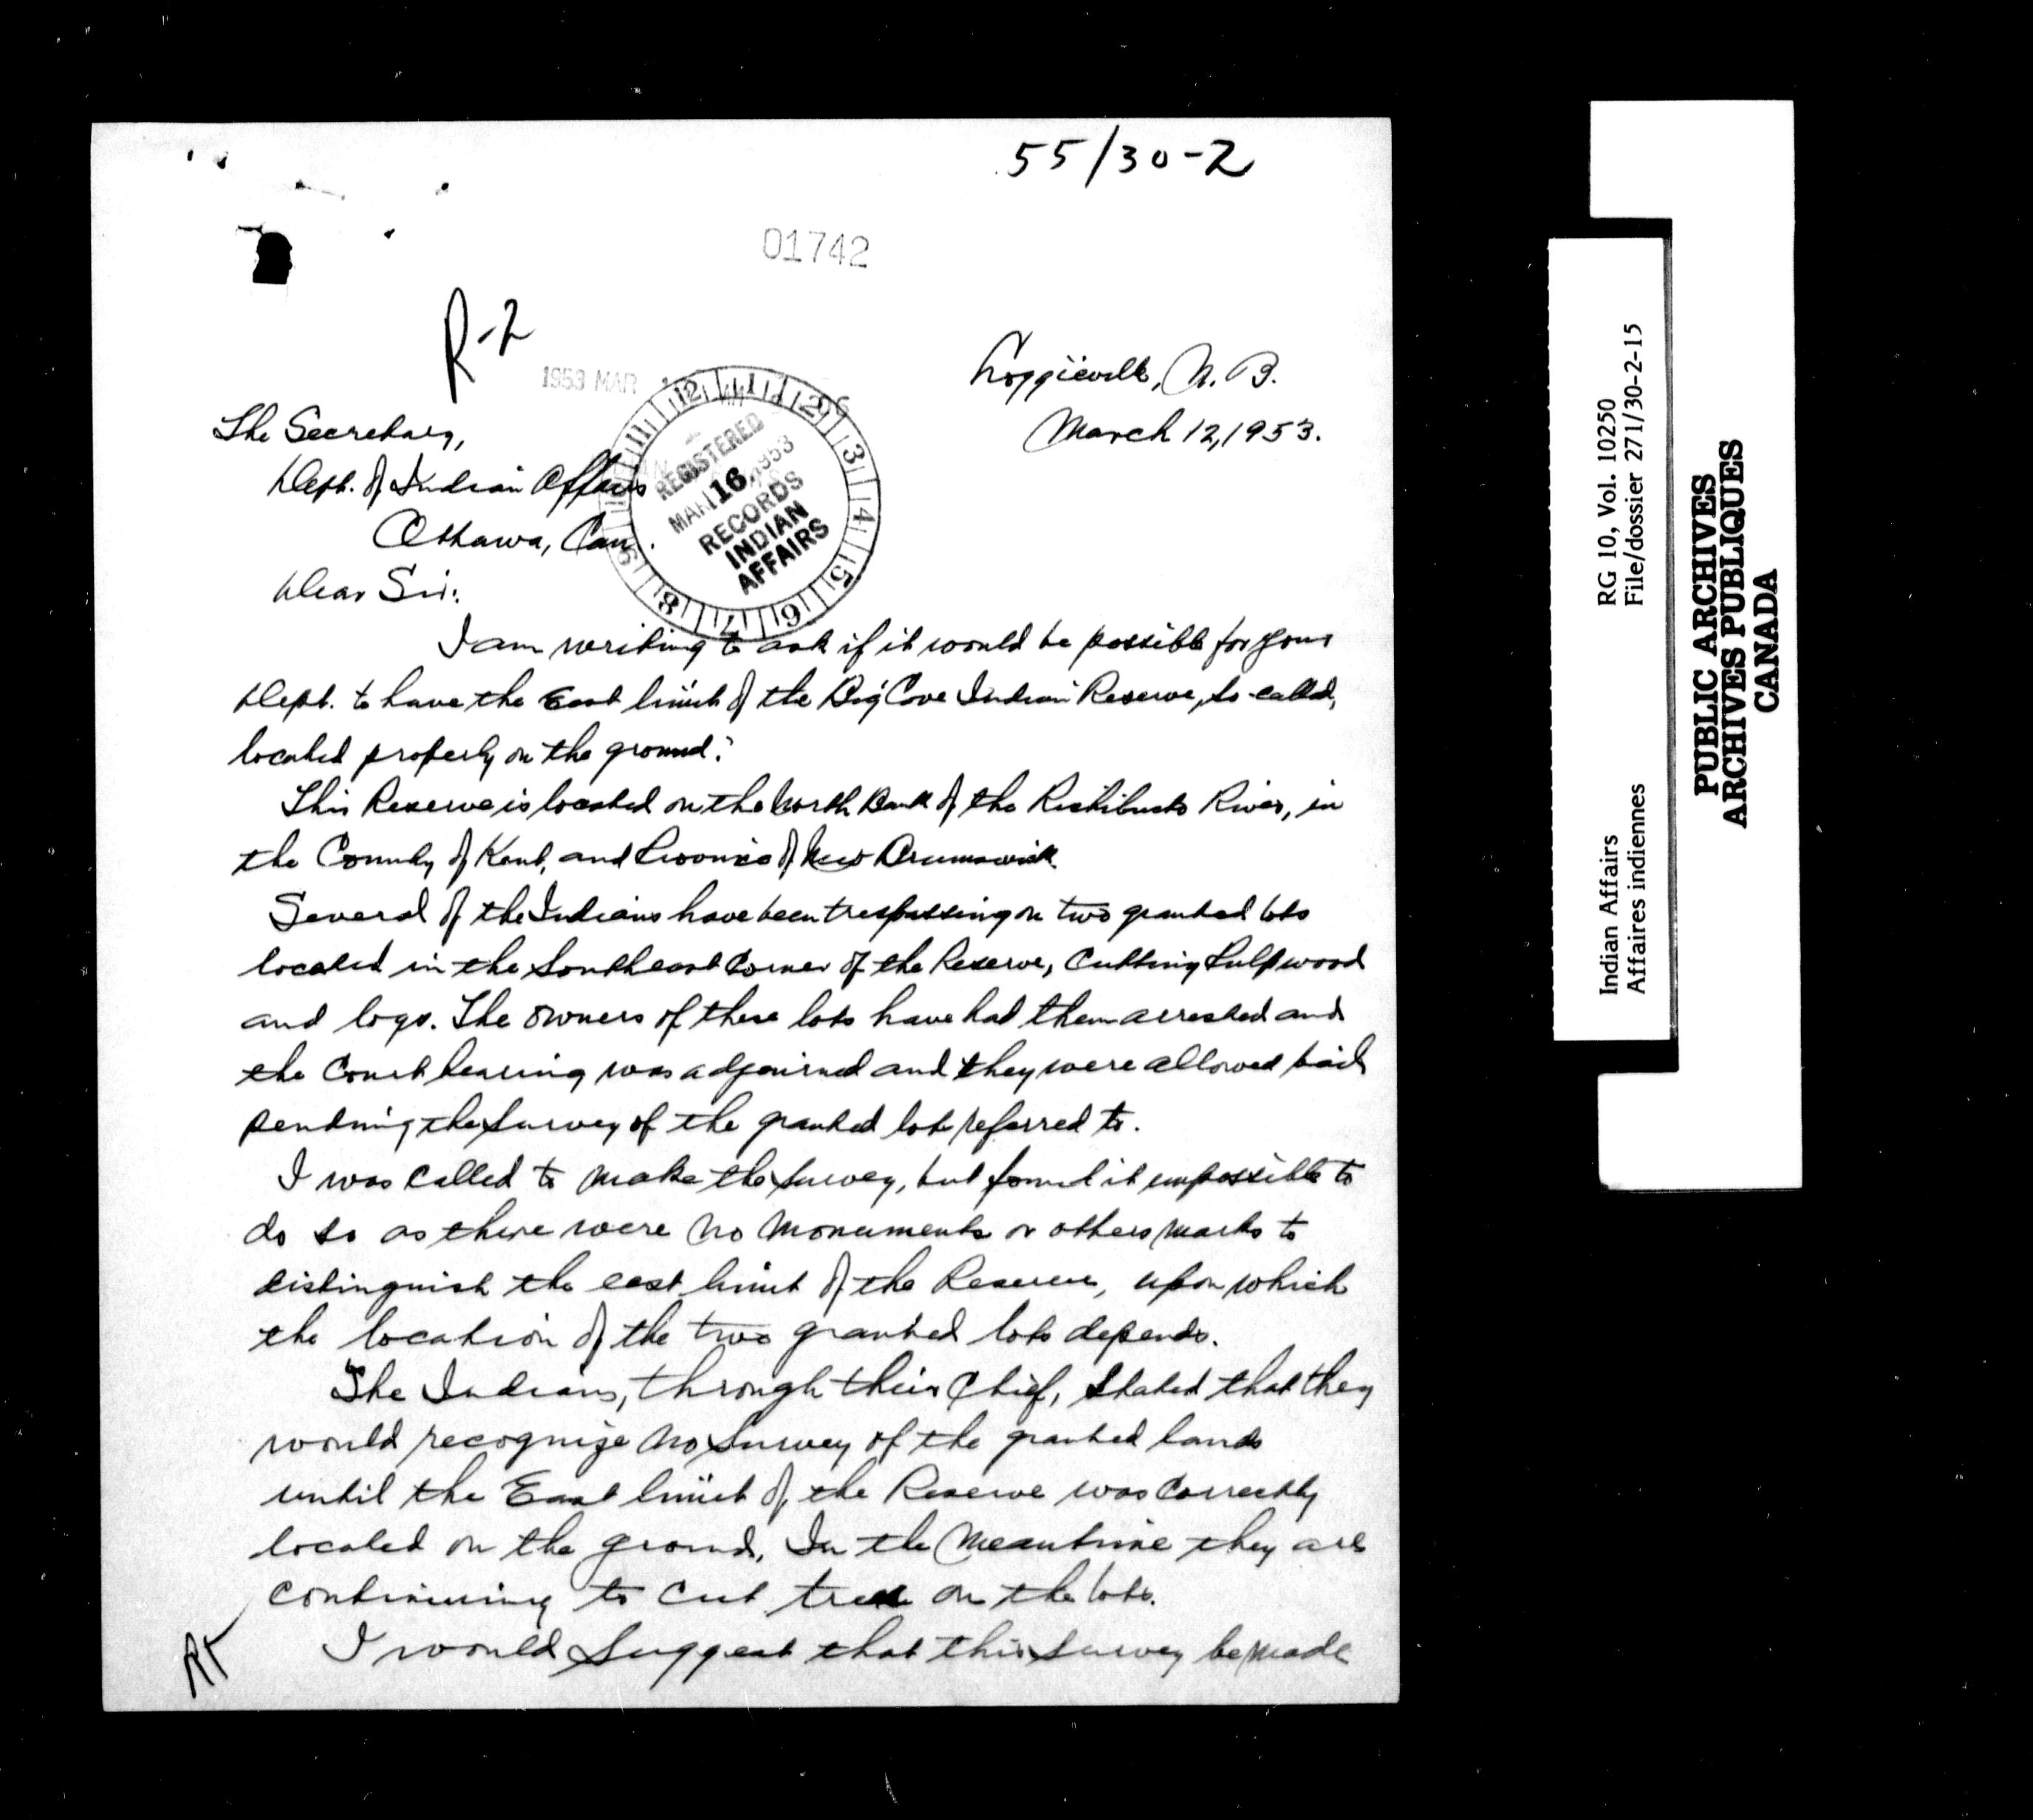 55/30-2
01742
R-2
1953 MAR
Loggieville, N. B.
March 12, 1953.
The Secretary,
Dept. of Indian Affairs
Ottawa, Can.
Dear Sir:
12 1 2 3 4 5 6 7 8 9 11
REGISTERED
MAR 16 1953
RECORDS
INDIAN
AFFAIRS
I am writing to ask if it would be possible for your
Dept. to have the East limit of the Big Cove Indian Reserve, so-called,
located properly on the ground.
This Reserve is located on the North Bank of the Richibucto River, in
the County of Kent, and Province of New Brunswick.
Several of the Indians have been trespassing on two granted lots
located in the Southeast Corner of the Reserve, Cutting Pulpwood
and logs. The owners of these lots have had them arrested and
the Court hearing was adjourned and they were allowed bail
pending the survey of the granted lots referred to.
I was called to make the survey, but found it impossible to
do so as there were no monuments or others marks to
distinguish the east limit of the Reserve, upon which
the location of the two granted lots depends.
The Indians, through their Chief, stated that they
would recognize no survey of the granted lands
until the East limit of the Reserve was correctly
located on the ground. In the meantime they are
continuing to cut trees on the lots.
I would suggest that this survey be made
RT
Indian Affairs RG 10, Vol. 10250
Affaires indiennes File/dossier 271/30-2-15
PUBLIC ARCHIVES
ARCHIVES PUBLIQUES
CANADA